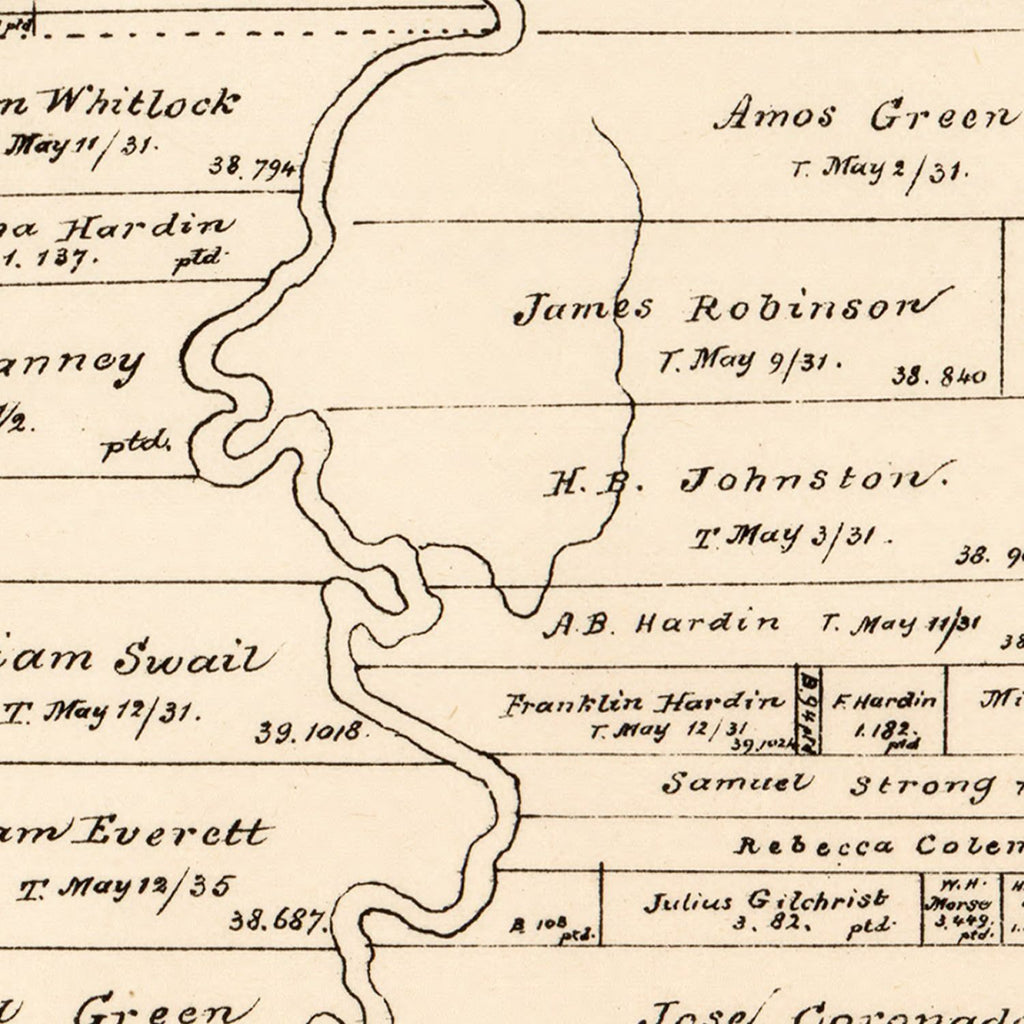 ptd
Whitlock
May 11/31.
38.794
Amos Green
T. May 2/31.
Hardin
1.137. ptd.
James Robinson
T. May 9/31.
38.840
anney
1/2.
ptd.
H. B. Johnston.
T. May 3/31.
38.
A. B. Hardin T. May 11/31
38
iam Swail
T. May 12/31.
39.1018.
Franklin Hardin
T. May 12/31
B. 94 ptd
F. Hardin
1.182.
ptd
Mi
Samuel Strong
am Everett
T. May 12/35
38.687.
Rebecca Colem
B. 108
ptd.
Julius Gilchrist
3. 82. ptd.
W. H.
Morse
3.449.
ptd.
H.
1.
Green
Jose Coronad